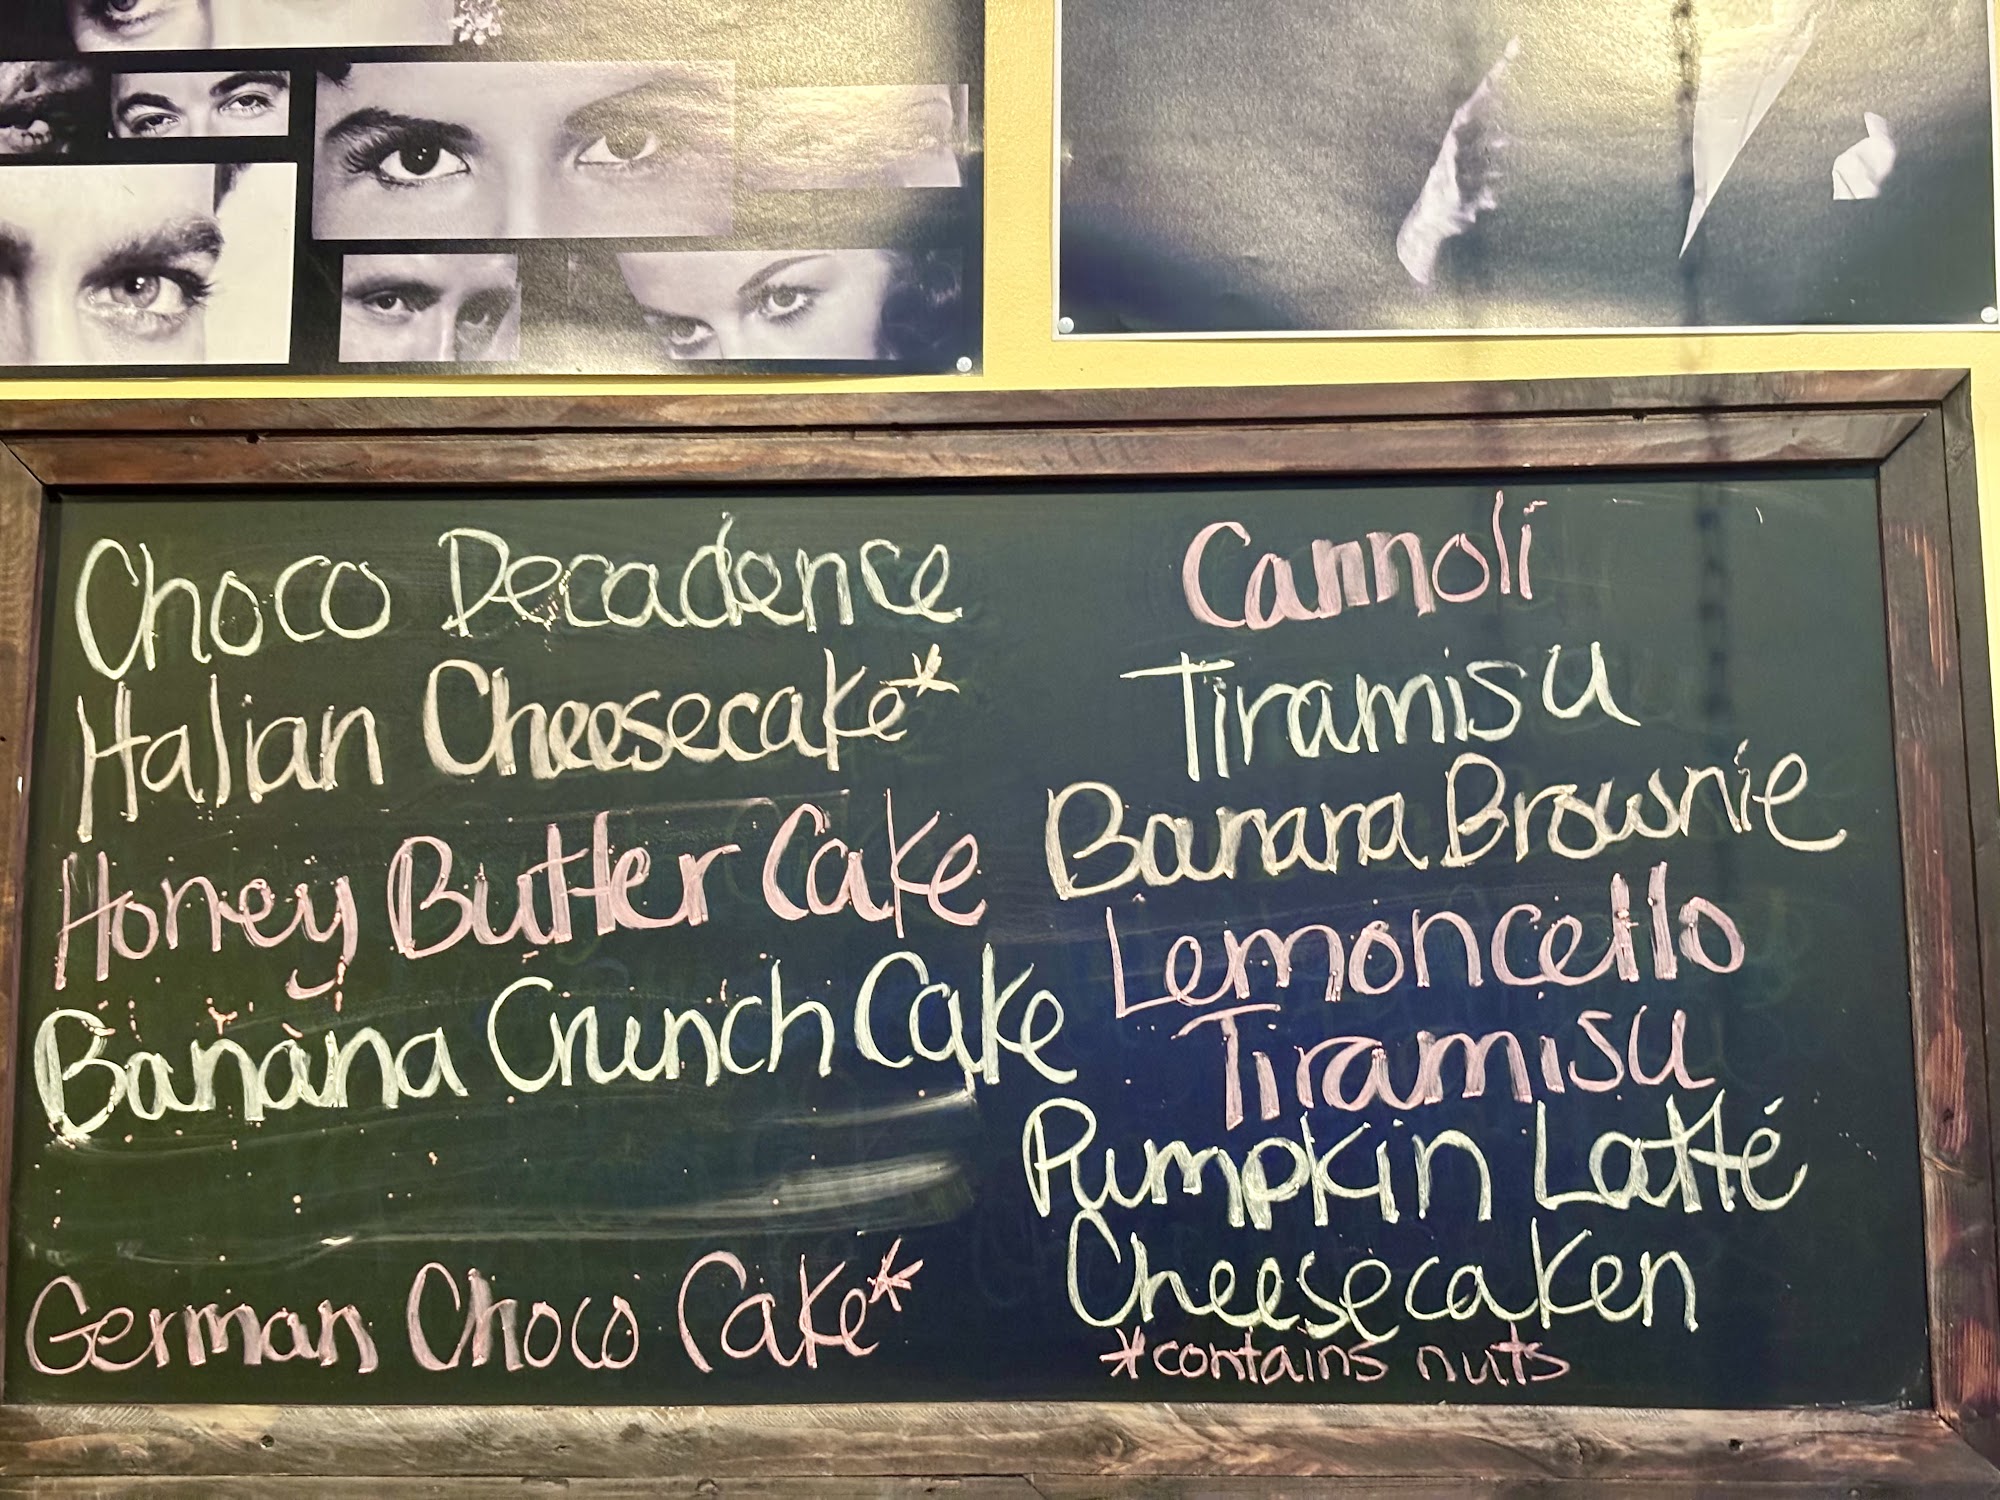 Choco Decadence
Italian Cheesecake*
Honey Butter Cake
Banana Crunch Cake
German Choco Cake*
Cannoli
Tiramisu
Banana Brownie
Lemoncello
Tiramisu
Pumpkin Latté
Cheesecaken
*contains nuts